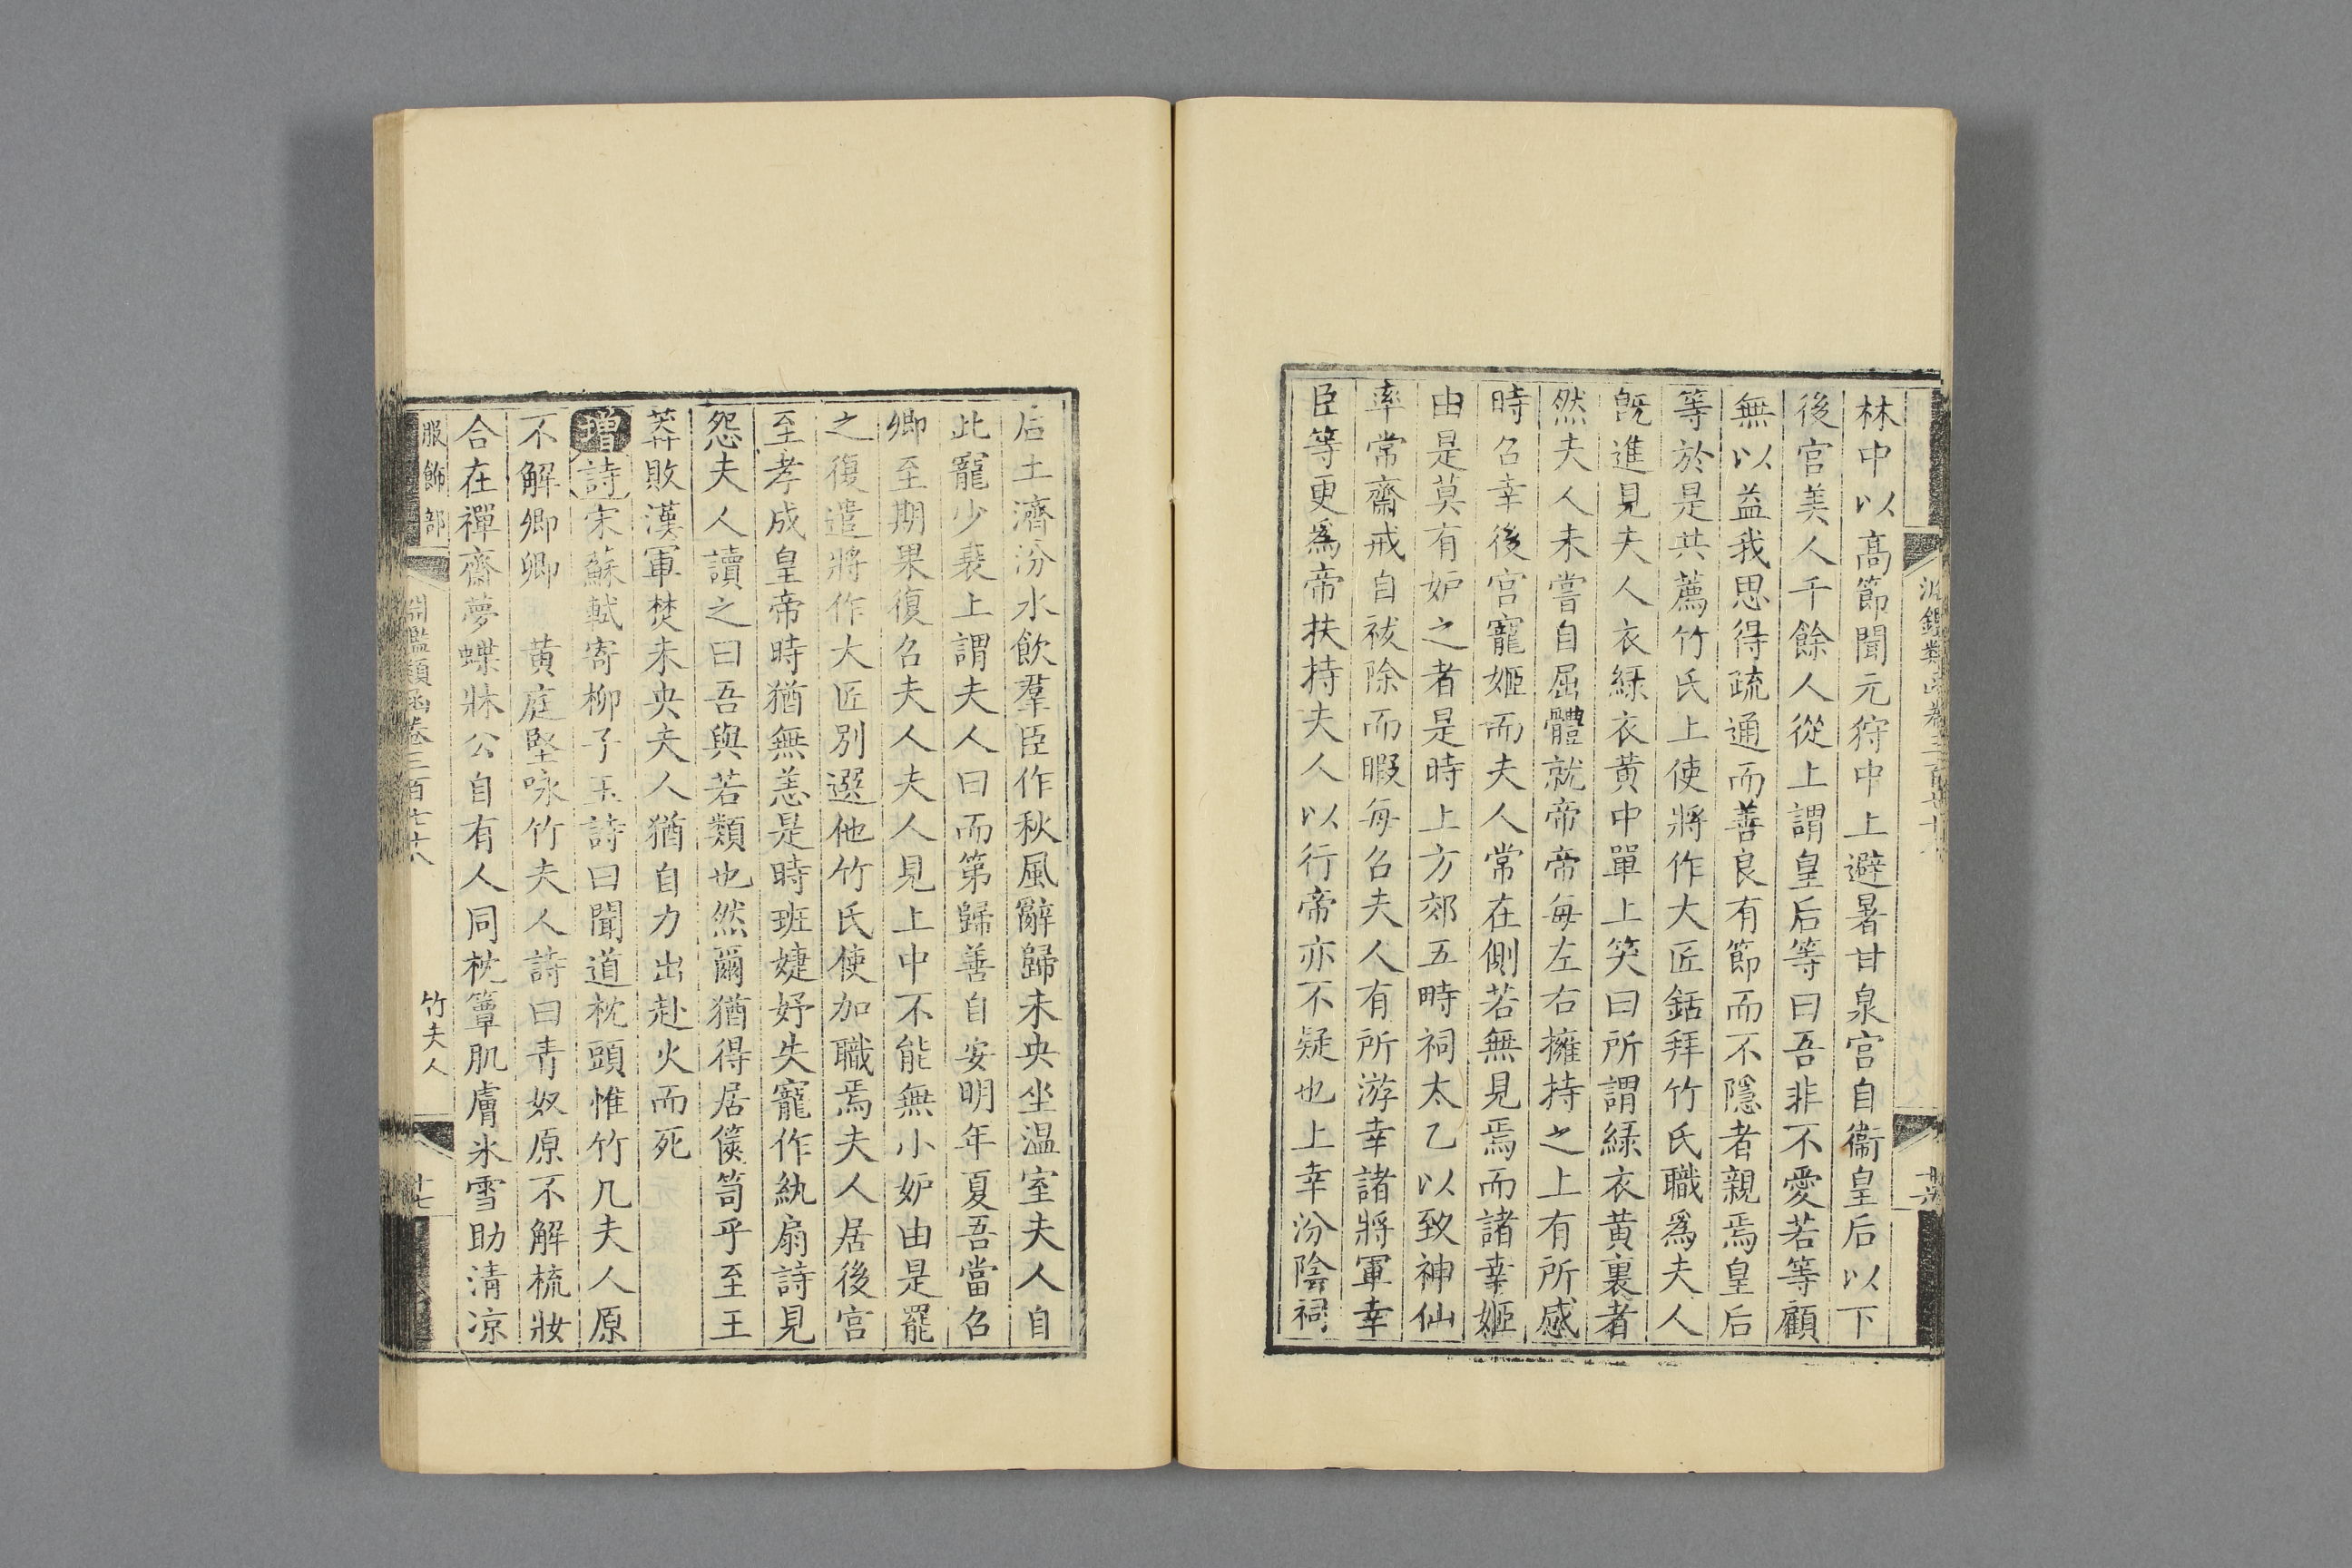 林中以高節聞元狩中上避暑甘泉宮自衞皇后以下
後宮美人千餘人從上謂皇后等曰吾非不愛若等顧
無以益我思得疏通而善良有節而不隱者親焉皇后
等於是共薦竹氏上使將作大匠銛拜竹氏職爲夫人
旣進見夫人衣綠衣黃中單上笑曰所謂綠衣黃裏者
然夫人未嘗自屈體就帝帝每左右擁持之上有所感
時召幸後宮寵姬而夫人常在側若無見焉而諸幸姬
由是莫有妒之者是時上方郊五畤祠太乙以致神仙
率常齋戒自祓除而暇每召夫人有所游幸諸將軍幸
臣等更爲帝扶持夫人以行帝亦不疑也上幸汾陰祠
后土濟汾水飲羣臣作秋風辭歸未央坐溫室夫人自
此寵少衰上謂夫人曰而第歸善自安明年夏吾當召
卿至期果復召夫人夫人見上中不能無小妒由是罷
之復遣將作大匠別選他竹氏使加職焉夫人居後宮
至孝成皇帝時猶無恙是時班婕妤失寵作紈扇詩見
怨夫人讀之曰吾與若類也然爾猶得居篋笥乎至王
莽敗漢軍焚未央夫人猶自力出赴火而死
增詩宋蘇軾寄柳子玉詩曰聞道枕頭惟竹几夫人原
不解卿卿　黃庭堅咏竹夫人詩曰青奴原不解梳妝
合在禪齋夢蝶牀公自有人同枕簟肌膚氷雪助清凉
服飾部
淵鑑類函卷三百七十八
竹夫人
十七